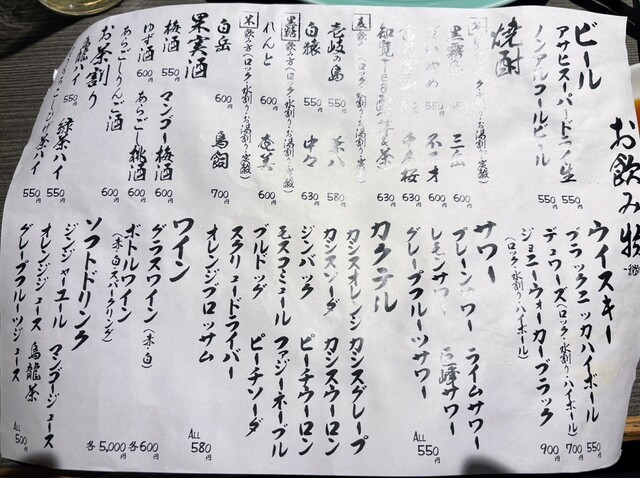 お飲み物
ビール
アサヒスーパードライ生 550円
ノンアルコールビール 550円
焼酎
黒霧島
三岳 600円
不二才 600円
550
630円
【麦】飲み方(ロック・水割り・お湯割り・炭酸)
壱岐の島 550
茶八 580円
白猿 550
中々 630円
【黒糖】飲み方(ロック・水割り・お湯割り・炭酸)
れんと 600
奄美 600円
【米】飲み方(ロック・水割り・お湯割り・炭酸)
白岳 600
鳥飼 700円
果実酒
梅酒 550
マンゴー梅酒 600円
ゆず酒 600
あらごし桃酒 600円
あらごしりんご酒 600円
お茶割り
烏龍ハイ 550
緑茶ハイ 550円
茶ハイ 550円
ウイスキー
ブラックニッカハイボール 550円
デュワーズ(ロック・水割り・ハイボール) 700円
ジョニーウォーカーブラック 900円
(ロック・水割り・ハイボール)
サワー
プレーンサワー ライムサワー
レモンサワー 巨峰サワー
グレープフルーツサワー
ALL 550円
カクテル
カシスオレンジ カシスグレープ
カシスソーダ カシスウーロン
ジンバック ピーチウーロン
モスコミュール ファジーネーブル
ブルドッグ ピーチソーダ
スクリュードライバー
オレンジブロッサム
ALL 580円
ワイン
グラスワイン(赤・白) 各600円
ボトルワイン 各5,000円
(赤・白・スパークリング)
ソフトドリンク
ジンジャーエール マンゴージュース
オレンジジュース 烏龍茶
グレープフルーツジュース
ALL 500円